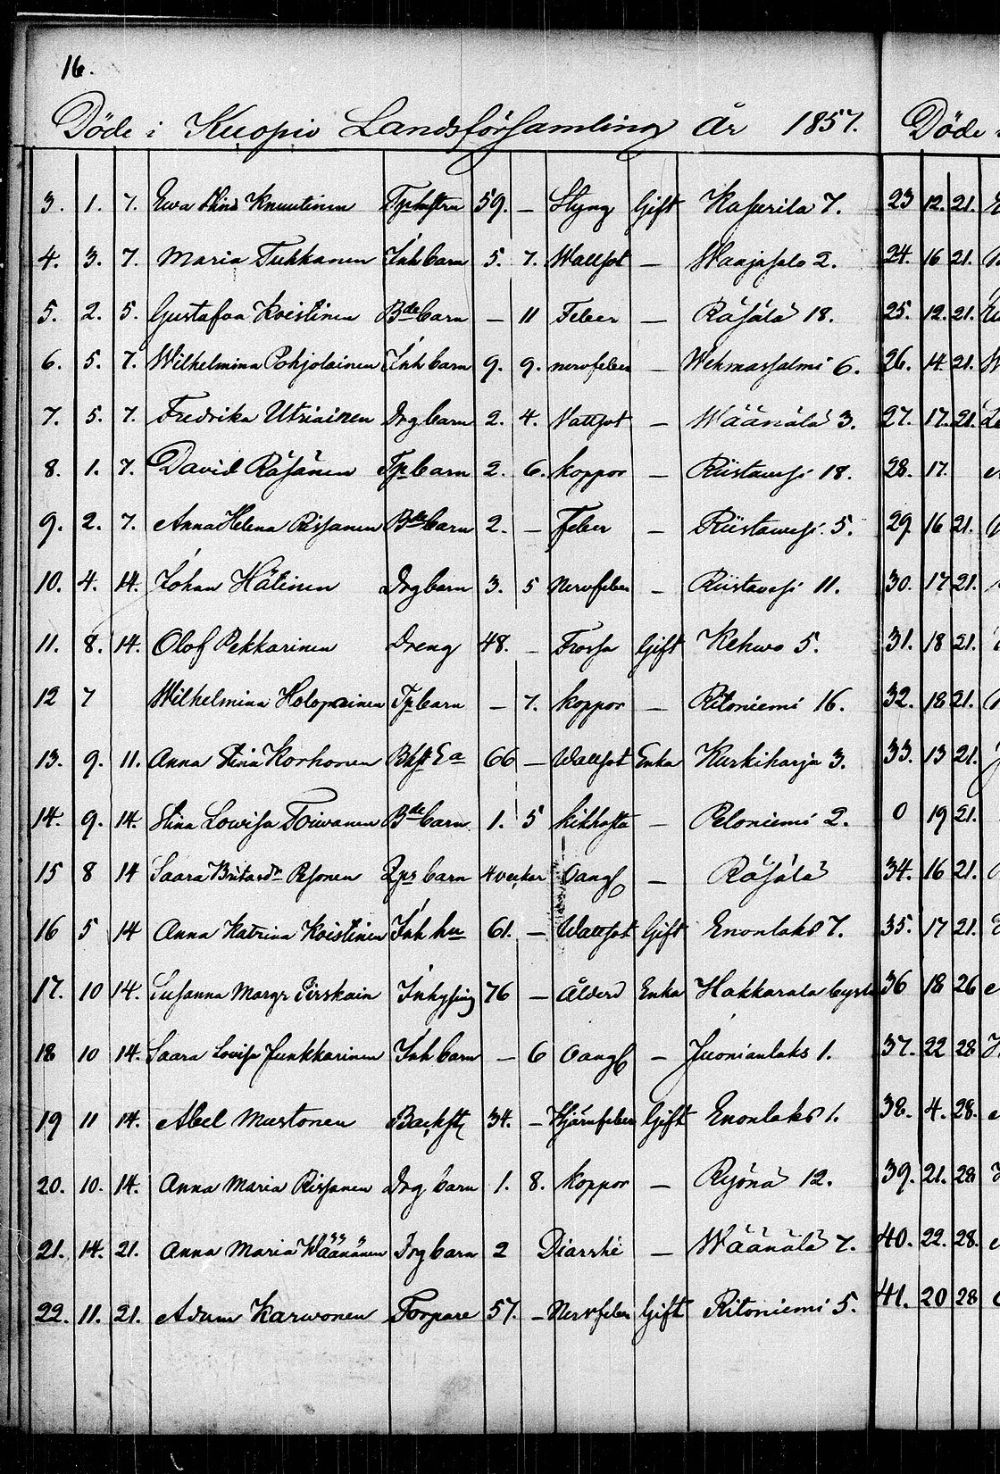 16.
Döde i Kuopio Landsförsamling År 1857. Döde
3. 1. 7. Ewa Stina Knuutinen 59. – Styng Gift Kasurila 7. 23 12. 21.
4. 3. 7. Maria Tukkanen Inh barn 5. 7. Wattsot – Waajasalo 2. 24. 16 21.
5. 2. 5. Gustafva Koistinen Bde barn – 11 Feber – Räsälä 18. 25. 12. 21.
6. 5. 7. Wilhelmina Pohjolainen Inh barn 9. 9. nervfeber – Wehmassalmi 6. 26. 14 21.
7. 5. 7. Fredrika Utriainen Drg barn 2. 4. Vattsot – Wäänälä 3. 27. 17. 21.
8. 1. 7. David Räsänen Tp barn 2. 6. koppor – Riistawesi 18. 28. 17.
9. 2. 7. Anna Helena Rissanen Bde barn 2. – Feber – Riistawesi 5. 29 16 21.
10. 4. 14. Johan Hätinen Drg barn 3. 5 Nervfeber – Riistavesi 11. 30. 17 21.
11. 8. 14. Olof Pekkarinen Dreng 48. – Frossa Gift Kehwo 5. 31. 18 21.
12 7 Wilhelmina Holopainen Tp barn – 7. koppor – Ritoniemi 16. 32. 18 21.
13. 9. 11. Anna Stina Korhonen Bkst Ea 66 – Wattsot Enka Kurkiharju 3. 33. 13 21.
14. 9. 14. Stina Lowisa Toiwanen Bde barn 1. 5 kikhosta – Peloniemi 2. 0 19 21.
15 8 14 Saara barn 4 veckor Oangf – Räsälä 34. 16 21.
16 5 14 Anna Katrina Koistinen Inh hu 61. – Wattsot Gift Enonlaks 7. 35. 17 21.
17. 10 14. Susanna Margr Pirskain Inhysing 76 – Ålderd Enka Hakkarala 36 18 26
18 10 14. Saara Lovisa Junkkarinen Inh barn – 6 Oangf – Juonianlaks 1. 37. 22 28
19 11 14. Abel Mustonen Backst 34. – Hjärnfeber Gift Enonlaks 1. 38. 4. 28.
20. 10. 14. Anna Maria Rissanen Drg barn 1. 8. koppor – Ryönä 12. 39. 21. 28
21. 14. 21. Anna Maria Wäänänen barn 2 Diarrhé – Wäänälä 7. 40. 22. 28.
22. 11. 21. Adam Karwonen Torpare 57. – Nervfeber Gift Ritoniemi 5. 41. 20 28